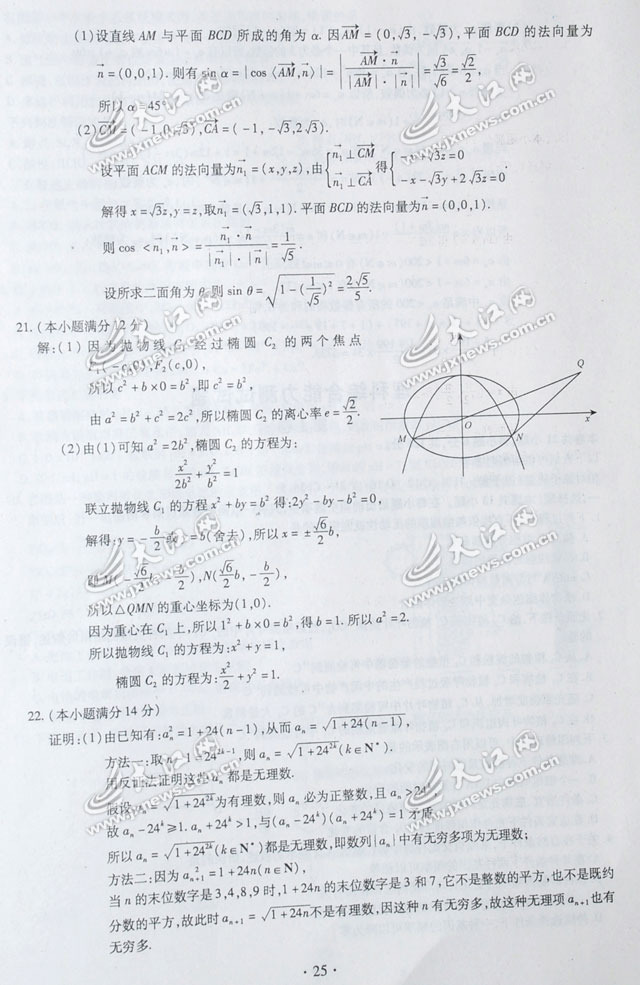 (1)设直线 AM 与平面 BCD 所成的角为 α. 因 $\overrightarrow{AM}$=(0,√3,-√3),平面 BCD 的法向量为
$\vec{n}$=(0,0,1). 则有 sin α=|cos⟨$\overrightarrow{AM}$,$\vec{n}$⟩|=|$\frac{\overrightarrow{AM}·\vec{n}}{|\overrightarrow{AM}|·|\vec{n}|}$|=$\frac{√3}{√6}$=$\frac{√2}{2}$,
所以 α=45°.
(2)$\overrightarrow{CM}$=(-1,0,√3),$\overrightarrow{CA}$=(-1,-√3,2√3).
设平面 ACM 的法向量为$\vec{n_1}$=(x,y,z),由{$\vec{n_1}$⊥$\overrightarrow{CM}$ $\vec{n_1}$⊥$\overrightarrow{CA}$ 得{-x+√3z=0 -x-√3y+2√3z=0.
解得 x=√3z,y=z,取$\vec{n_1}$=(√3,1,1). 平面 BCD 的法向量为$\vec{n}$=(0,0,1).
则 cos <$\vec{n_1}$,$\vec{n}$>=$\frac{\vec{n_1}·\vec{n}}{|\vec{n_1}|·|\vec{n}|}$=$\frac{1}{√5}$.
设所求二面角为 θ,则 sin θ=$\sqrt{1-(\frac{1}{√5})^2}$=$\frac{2√5}{5}$.
21. (本小题满分12分)
解:(1)因为抛物线 C₁ 经过椭圆 C₂ 的两个焦点
F₁(-c,0),F₂(c,0),
所以 c²+b×0=b²,即 c²=b²,
由 a²=b²+c²=2c²,所以椭圆 C₂ 的离心率 e=$\frac{√2}{2}$.
(2)由(1)可知 a²=2b²,椭圆 C₂ 的方程为:
$\frac{x^2}{2b^2}+\frac{y^2}{b^2}$=1
联立抛物线 C₁ 的方程 x²+by=b² 得:2y²-by-b²=0,
解得:y=-$\frac{b}{2}$或 y=b(舍去),所以 x=±$\frac{√6}{2}$b,
即 M(-$\frac{√6}{2}$b,-$\frac{b}{2}$),N($\frac{√6}{2}$b,-$\frac{b}{2}$),
所以△QMN 的重心坐标为(1,0).
因为重心在 C₁ 上,所以 1²+b×0=b²,得 b=1. 所以 a²=2.
所以抛物线 C₁ 的方程为:x²+y=1,
椭圆 C₂ 的方程为:$\frac{x^2}{2}$+y²=1.
Q
O
x
M
N
22. (本小题满分14分)
证明:(1)由已知有:$a_n^2$=1+24(n-1),从而 $a_n=\sqrt{1+24(n-1)}$,
方法一:取 n-1=$24^{2k-1}$,则 $a_n=\sqrt{1+24^{2k}}$(k∈N*).
用反证法证明这些 $a_n$ 都是无理数.
假设 $a_n=\sqrt{1+24^{2k}}$为有理数,则 $a_n$ 必为正整数,且 $a_n>24^k$,
故 $a_n-24^k$≥1. $a_n+24^k$>1,与($a_n-24^k$)($a_n+24^k$)=1 矛盾,
所以 $a_n=\sqrt{1+24^{2k}}$(k∈N*)都是无理数,即数列{$a_n$}中有无穷多项为无理数;
方法二:因为 $a_{n+1}^2$=1+24n(n∈N),
当 n 的末位数字是 3,4,8,9 时,1+24n 的末位数字是 3 和 7,它不是整数的平方,也不是既约
分数的平方,故此时 $a_{n+1}=\sqrt{1+24n}$不是有理数,因这种 n 有无穷多,故这种无理项 $a_{n+1}$也有
无穷多.
· 25 ·
大江网
www.jxnews.com.cn